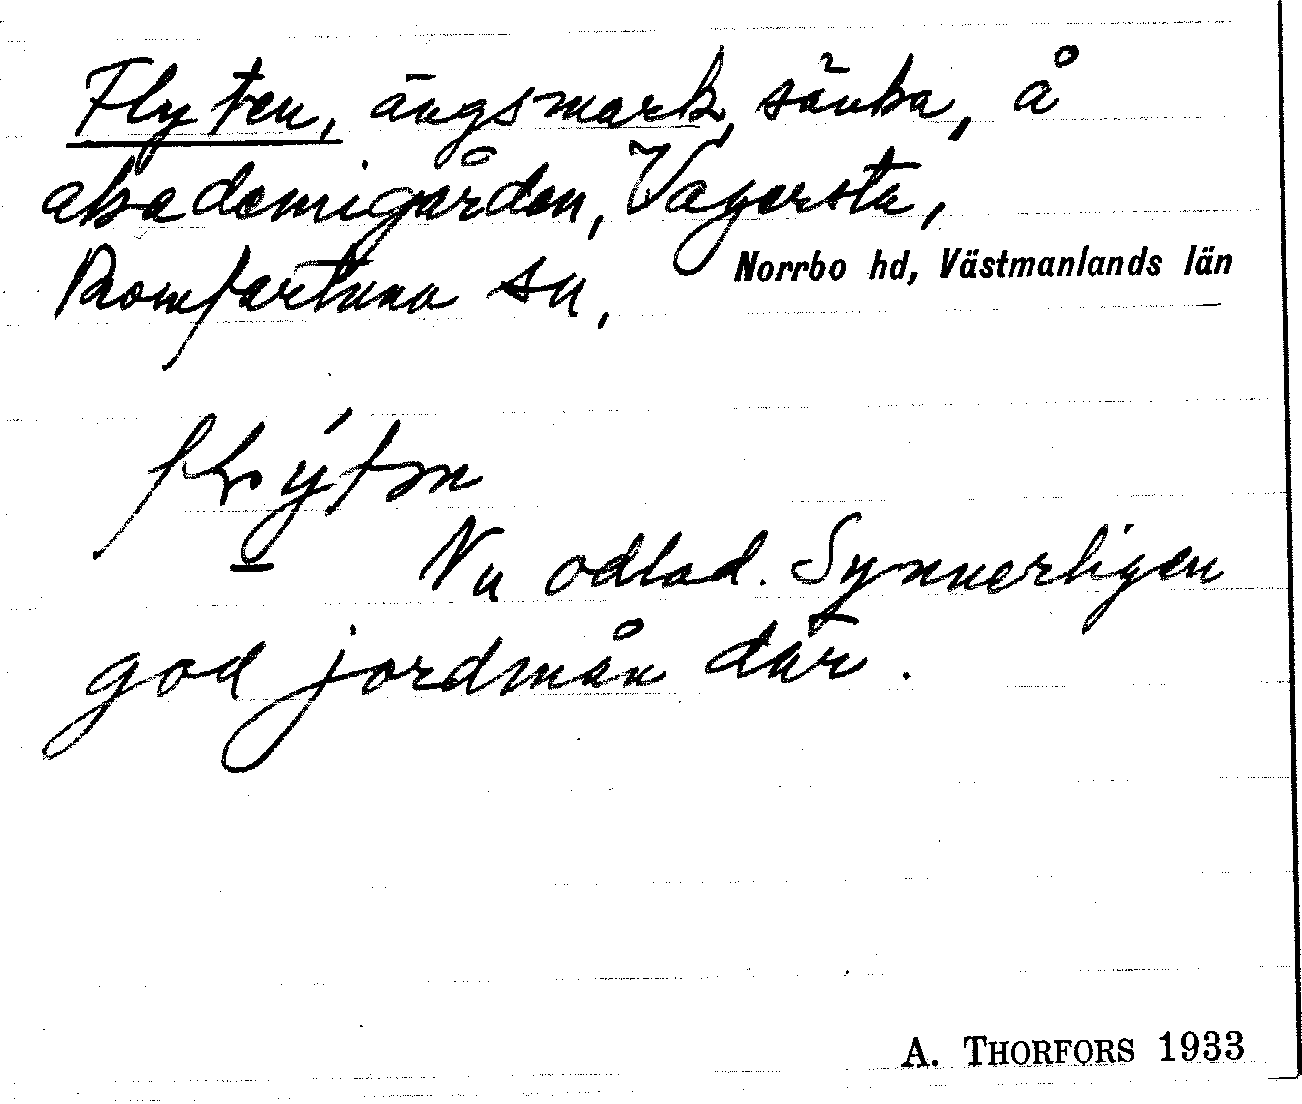 Flyten, ängsmark, sänka, å
akademigården, Vagersta,
Romfartuna sn, Norrbo hd, Västmanlands län
Nu odlad. Synnerligen
god jordmån där.
A. THORFORS 1933